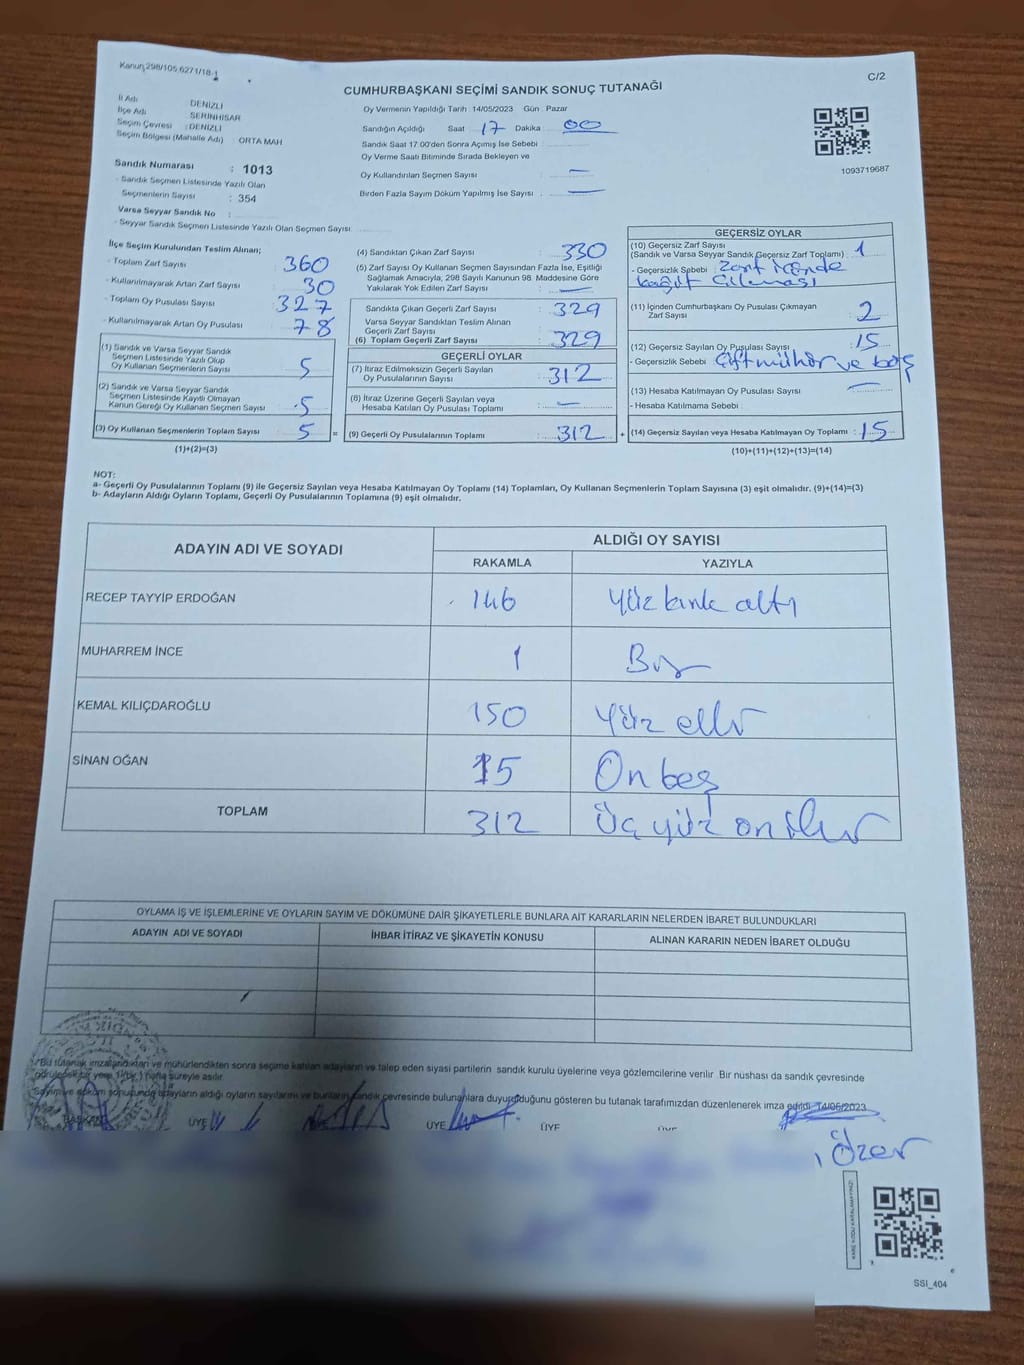 Kanun 298/105 6271/18-1
C/2
CUMHURBAŞKANI SEÇİMİ SANDIK SONUÇ TUTANAĞI
İl Adı DENİZLİ
İlçe Adı SERİNHİSAR
Seçim Çevresi : DENİZLİ
Seçim Bölgesi (Mahalle Adı) ORTA MAH
Oy Vermenin Yapıldığı Tarih 14/05/2023 Gün Pazar
Sandığın Açıldığı Saat 17 Dakika 00
Sandık Saat 17 00'den Sonra Açımış İse Sebebi
Oy Verme Saati Bitiminde Sırada Bekleyen ve
Oy Kullandırılan Seçmen Sayısı —
Birden Fazla Sayım Döküm Yapılmış İse Sayısı —
1093719687
Sandık Numarası : 1013
- Sandık Seçmen Listesinde Yazılı Olan
Seçmenlerin Sayısı : 354
Varsa Seyyar Sandık No :
- Seyyar Sandık Seçmen Listesinde Yazılı Olan Seçmen Sayısı
İlçe Seçim Kurulundan Teslim Alınan;
- Toplam Zarf Sayısı 360
- Kullanılmayarak Artan Zarf Sayısı 30
- Toplam Oy Pusulası Sayısı 327
- Kullanılmayarak Artan Oy Pusulası 78
(1) Sandık ve Varsa Seyyar Sandık
Seçmen Listesinde Yazılı Olup
Oy Kullanan Seçmenlerin Sayısı 5
(2) Sandık ve Varsa Seyyar Sandık
Seçmen Listesinde Kayıtlı Olmayan
Kanun Gereği Oy Kullanan Seçmen Sayısı 5
(3) Oy Kullanan Seçmenlerin Toplam Sayısı 5 =
(1)+(2)=(3)
(4) Sandıktan Çıkan Zarf Sayısı : 330
(5) Zarf Sayısı Oy Kullanan Seçmen Sayısından Fazla İse, Eşitliği
Sağlamak Amacıyla, 298 Sayılı Kanunun 98. Maddesine Göre
Yakılarak Yok Edilen Zarf Sayısı : —
Sandıkta Çıkan Geçerli Zarf Sayısı : 329
Varsa Seyyar Sandıktan Teslim Alınan
Geçerli Zarf Sayısı
(6) Toplam Geçerli Zarf Sayısı : 329
GEÇERLİ OYLAR
(7) İtiraz Edilmeksizin Geçerli Sayılan
Oy Pusulalarının Sayısı : 312
(8) İtiraz Üzerine Geçerli Sayılan veya
Hesaba Katılan Oy Pusulası Toplamı : —
(9) Geçerli Oy Pusulalarının Toplamı : 312 +
GEÇERSİZ OYLAR
(10) Geçersiz Zarf Sayısı
(Sandık ve Varsa Seyyar Sandık Geçersiz Zarf Toplamı) : 1
- Geçersizlik Sebebi : Zarf içinde
kağıt çıkması
(11) İçinden Cumhurbaşkanı Oy Pusulası Çıkmayan
Zarf Sayısı 2
(12) Geçersiz Sayılan Oy Pusulası Sayısı : 15
- Geçersizlik Sebebi Çift mühür ve boş
(13) Hesaba Katılmayan Oy Pusulası Sayısı —
- Hesaba Katılmama Sebebi
(14) Geçersiz Sayılan veya Hesaba Katılmayan Oy Toplamı : 15
(10)+(11)+(12)+(13)=(14)
NOT:
a- Geçerli Oy Pusulalarının Toplamı (9) ile Geçersiz Sayılan veya Hesaba Katılmayan Oy Toplamı (14) Toplamları, Oy Kullanan Seçmenlerin Toplam Sayısına (3) eşit olmalıdır. (9)+(14)=(3)
b- Adayların Aldığı Oyların Toplamı, Geçerli Oy Pusulalarının Toplamına (9) eşit olmalıdır.
ADAYIN ADI VE SOYADI ALDIĞI OY SAYISI
RAKAMLA YAZIYLA
RECEP TAYYİP ERDOĞAN 146 Yüz kırk altı
MUHARREM İNCE 1 Bir
KEMAL KILIÇDAROĞLU 150 Yüz elli
SİNAN OĞAN 15 On beş
TOPLAM 312 Üç yüz on iki
OYLAMA İŞ VE İŞLEMLERİNE VE OYLARIN SAYIM VE DÖKÜMÜNE DAİR ŞİKAYETLERLE BUNLARA AİT KARARLARIN NELERDEN İBARET BULUNDUKLARI
ADAYIN ADI VE SOYADI İHBAR İTİRAZ VE ŞİKAYETİN KONUSU ALINAN KARARIN NEDEN İBARET OLDUĞU
*Bu tutanak imzalandıktan ve mühürlendikten sonra seçime katılan adayların ve talep eden siyasi partilerin sandık kurulu üyelerine veya gözlemcilerine verilir. Bir nüshası da sandık çevresinde
görülebilecek bir yere 1 (bir) hafta süreyle asılır.
Sayım ve döküm sonucunda adayların aldığı oyların sayılarını ve bunların sandık çevresinde bulunanlara duyurulduğunu gösteren bu tutanak tarafımızdan düzenlenerek imza edildi. 14/05/2023
BAŞKAN ÜYE ÜYE ÜYE ÜYE
Özer
KARE KODU KARALAMAYINIZ!
SSI_404